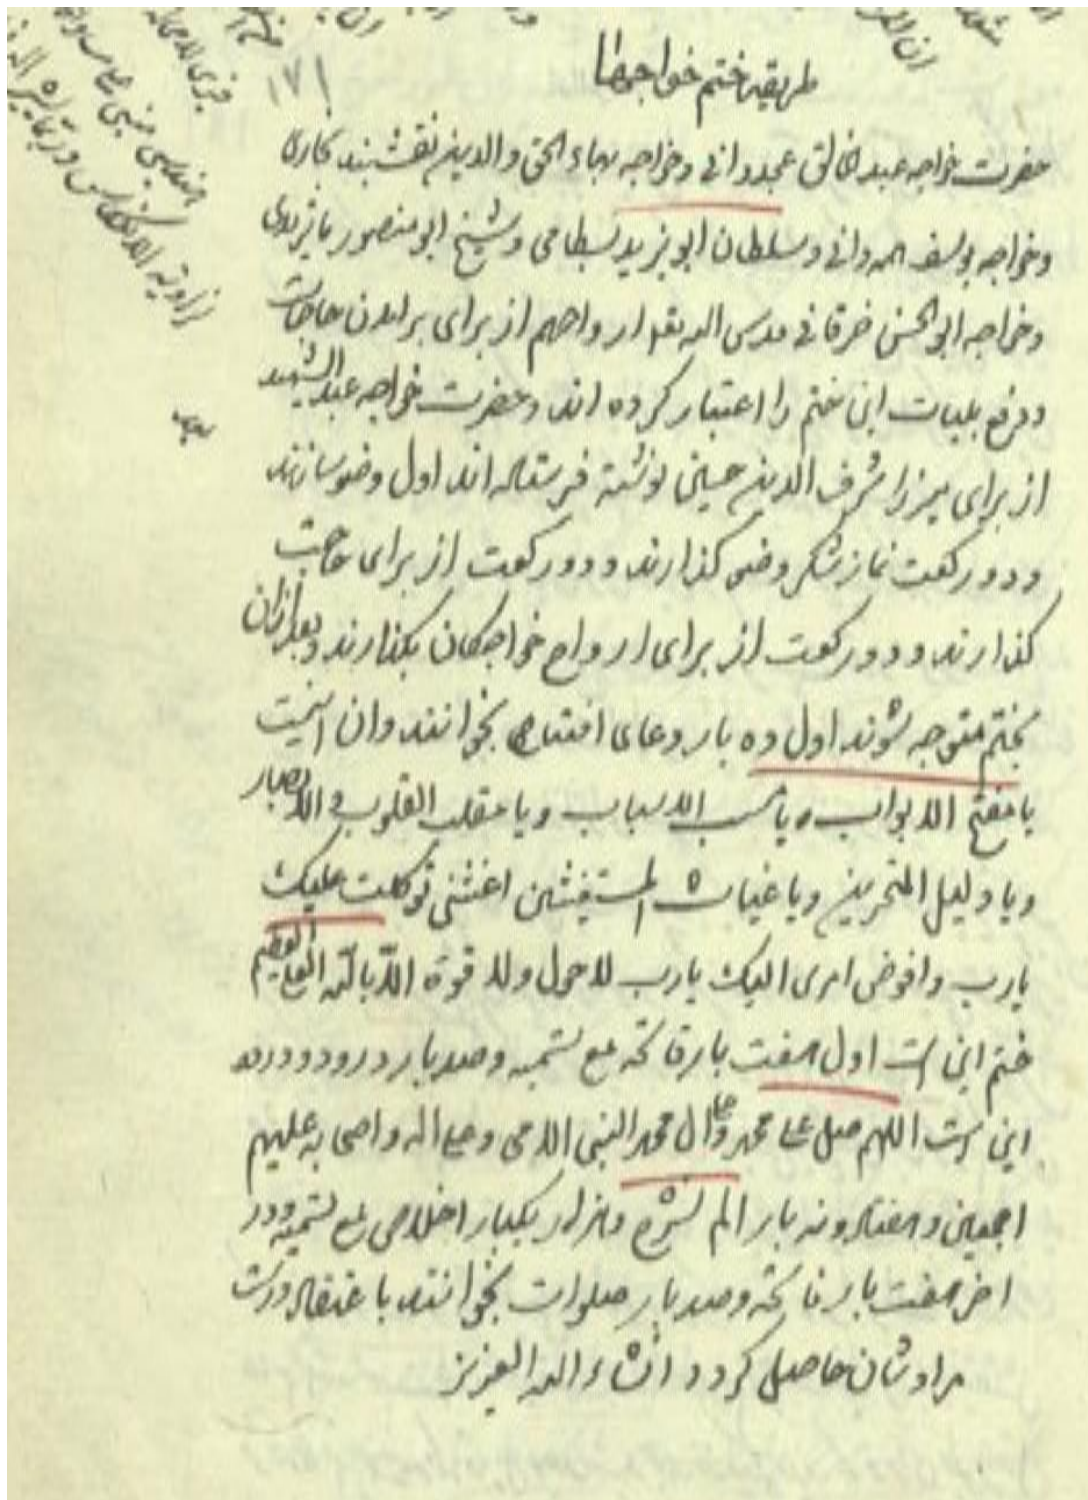 طریقه ختم خواجها
١٧١
حضرت خواجه عبد الخالق عجدوانی وخواجه بهاء الحق والدین نقشبند بخاری
وخواجه یوسف همدانی وسلطان ابو یزید بسطامی وشیخ ابو منصور ماتریدی
وخواجه ابو الحسن خرقانی قدس الله تعا ارواحهم از برای برامدن حاجات
ودفع بلیات این ختم را اعتبار کرده اند وحضرت خواجه عبد الشهید
از برای میرزا شرف الدین حسینی نوشته فرستاده اند اول وضو سازند
ودو رکعت نماز شکر وضو کذارند ودو رکعت از برای حاجت
کذارند ودو رکعت از برای ارواح خواجکان بکذارند وبعد ازان
بختم متوجه شوند اول ده بار دعای افتتاح بخوانند وان اینست
یا مفتح الابواب ویا مسبب الاسباب ویا مقلب القلوب والابصار
ویا دلیل المتحیرین ویا غیاث المستغیثین اغثنی توکلت علیک
یارب وافوض امری الیک یارب لا حول ولا قوة الا بالله العلی العظیم
ختم این است اول هفت بار فاتحه مع تسمیه وصد بار درود ودرود
این است اللهم صل علی محمد وعلی ال محمد النبی الامی وعلی اله واصحابه علیهم
اجمعین وهفتاد ونه بار الم نشرح وهزار ویکبار اخلاص مع تسمیه ودر
اخر هفت بار فاتحه وصد بار صلوات بخوانند باعتقاد درست
مرادشان حاصل کردد انشاء الله العزیز